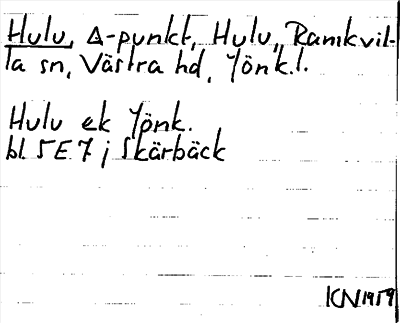 Hulu, Δ-punkt, Hulu, Ramkvil-
la sn, Västra hd, Jönk.l.
Hulu ek Jönk.
bl. 5E7 j Skärbäck
KN 1959